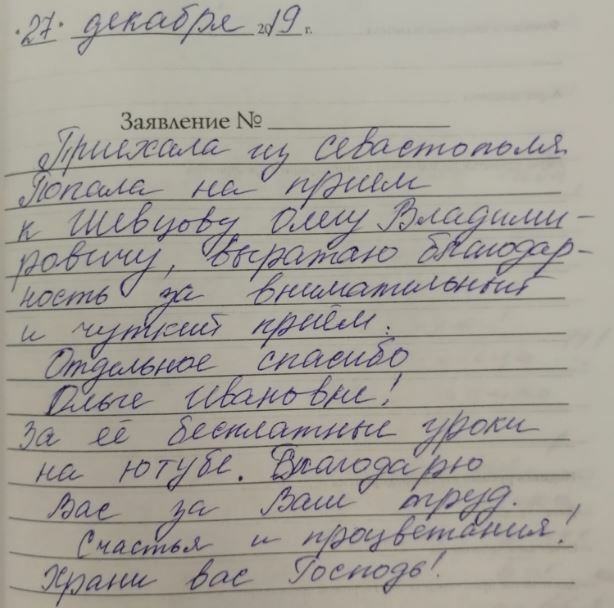 "27" декабря 2019 г.
Заявление №
Приехала из Севастополя
Попала на прием
к Шевцову Олегу Владими-
ровичу, выражаю благодар-
ность за внимательный
и чуткий приём.
Отдельное спасибо
Ольге Ивановне!
За её бесплатные уроки
на ютубе. Благодарю
Вас за Ваш труд.
Счастья и процветания!
Храни вас Господь!